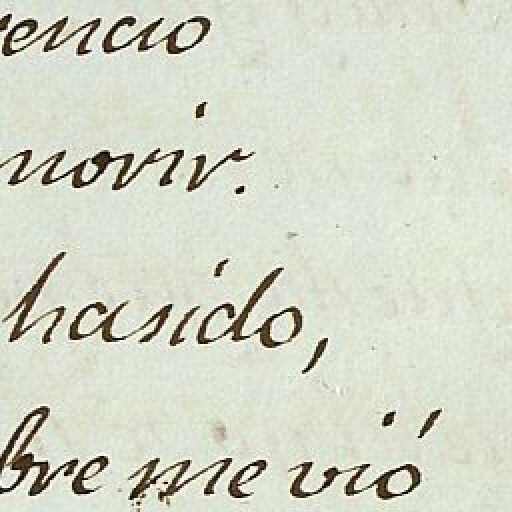 rencio
morir.
hasido,
bre me vió